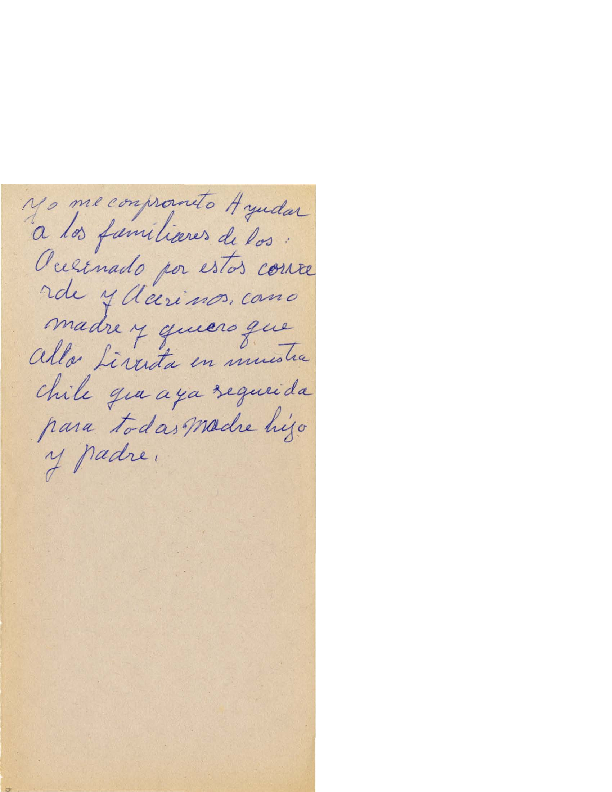 Yo me conprometo Ayudar
a los familiares de los
Acesinado por estos
y Acesinos, como
madre y quiero que
en nuestra
chile que aya segueida
para todas Madre hijo
y padre.